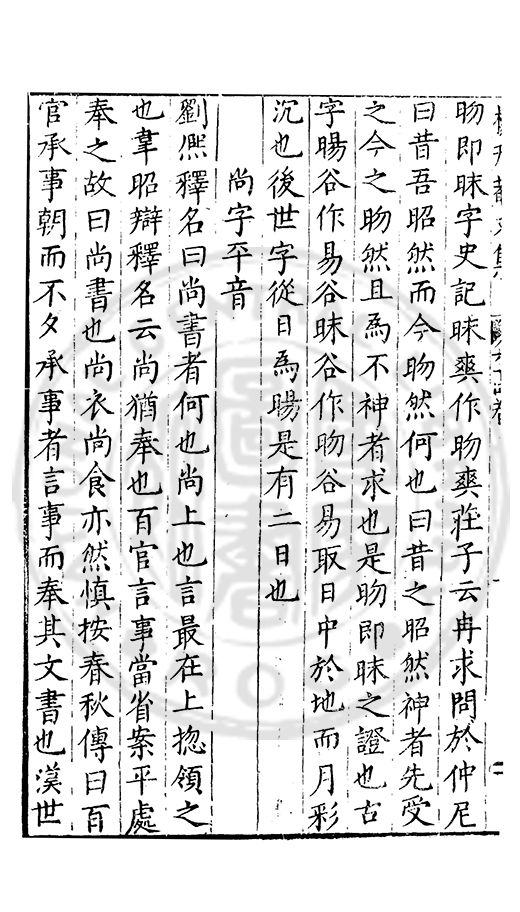 昒即昧字史記昧爽作昒爽莊子云冉求問於仲尼
曰昔吾昭然而今昒然何也曰昔之昭然神者先受
之今之昒然且為不神者求也是昒即昧之證也古
字暘谷作易谷昧谷作昒谷易取日中於地而月彩
沉也後世字從日為暘是有二日也
尚字平音
劉熙釋名曰尚書者何也尚上也言最在上揔領之
也韋昭辯釋名云尚猶奉也百官言事當省案平處
奉之故曰尚書也尚衣尚食亦然慎按春秋傳曰百
官承事朝而不夕承事者言事而奉其文書也漢世